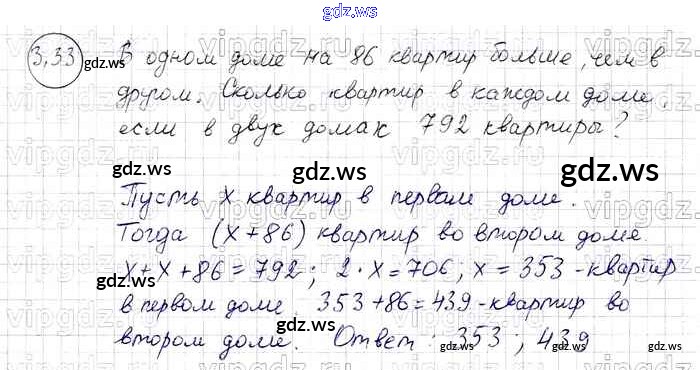 gdz.ws
3.33 В одном доме на 86 квартир больше, чем в
другом. Сколько квартир в каждом доме,
если в двух домах 792 квартиры?
Пусть x квартир в первом доме.
Тогда (x+86) квартир во втором доме.
x+x+86=792; 2·x=706; x=353-квартир
в первом доме. 353+86=439-квартир во
втором доме. Ответ: 353; 439
gdz.ws
gdz.ws
gdz.ws
gdz.ws
gdz.ws
gdz.ws
gdz.ws
gdz.ws
vipgdz.ru